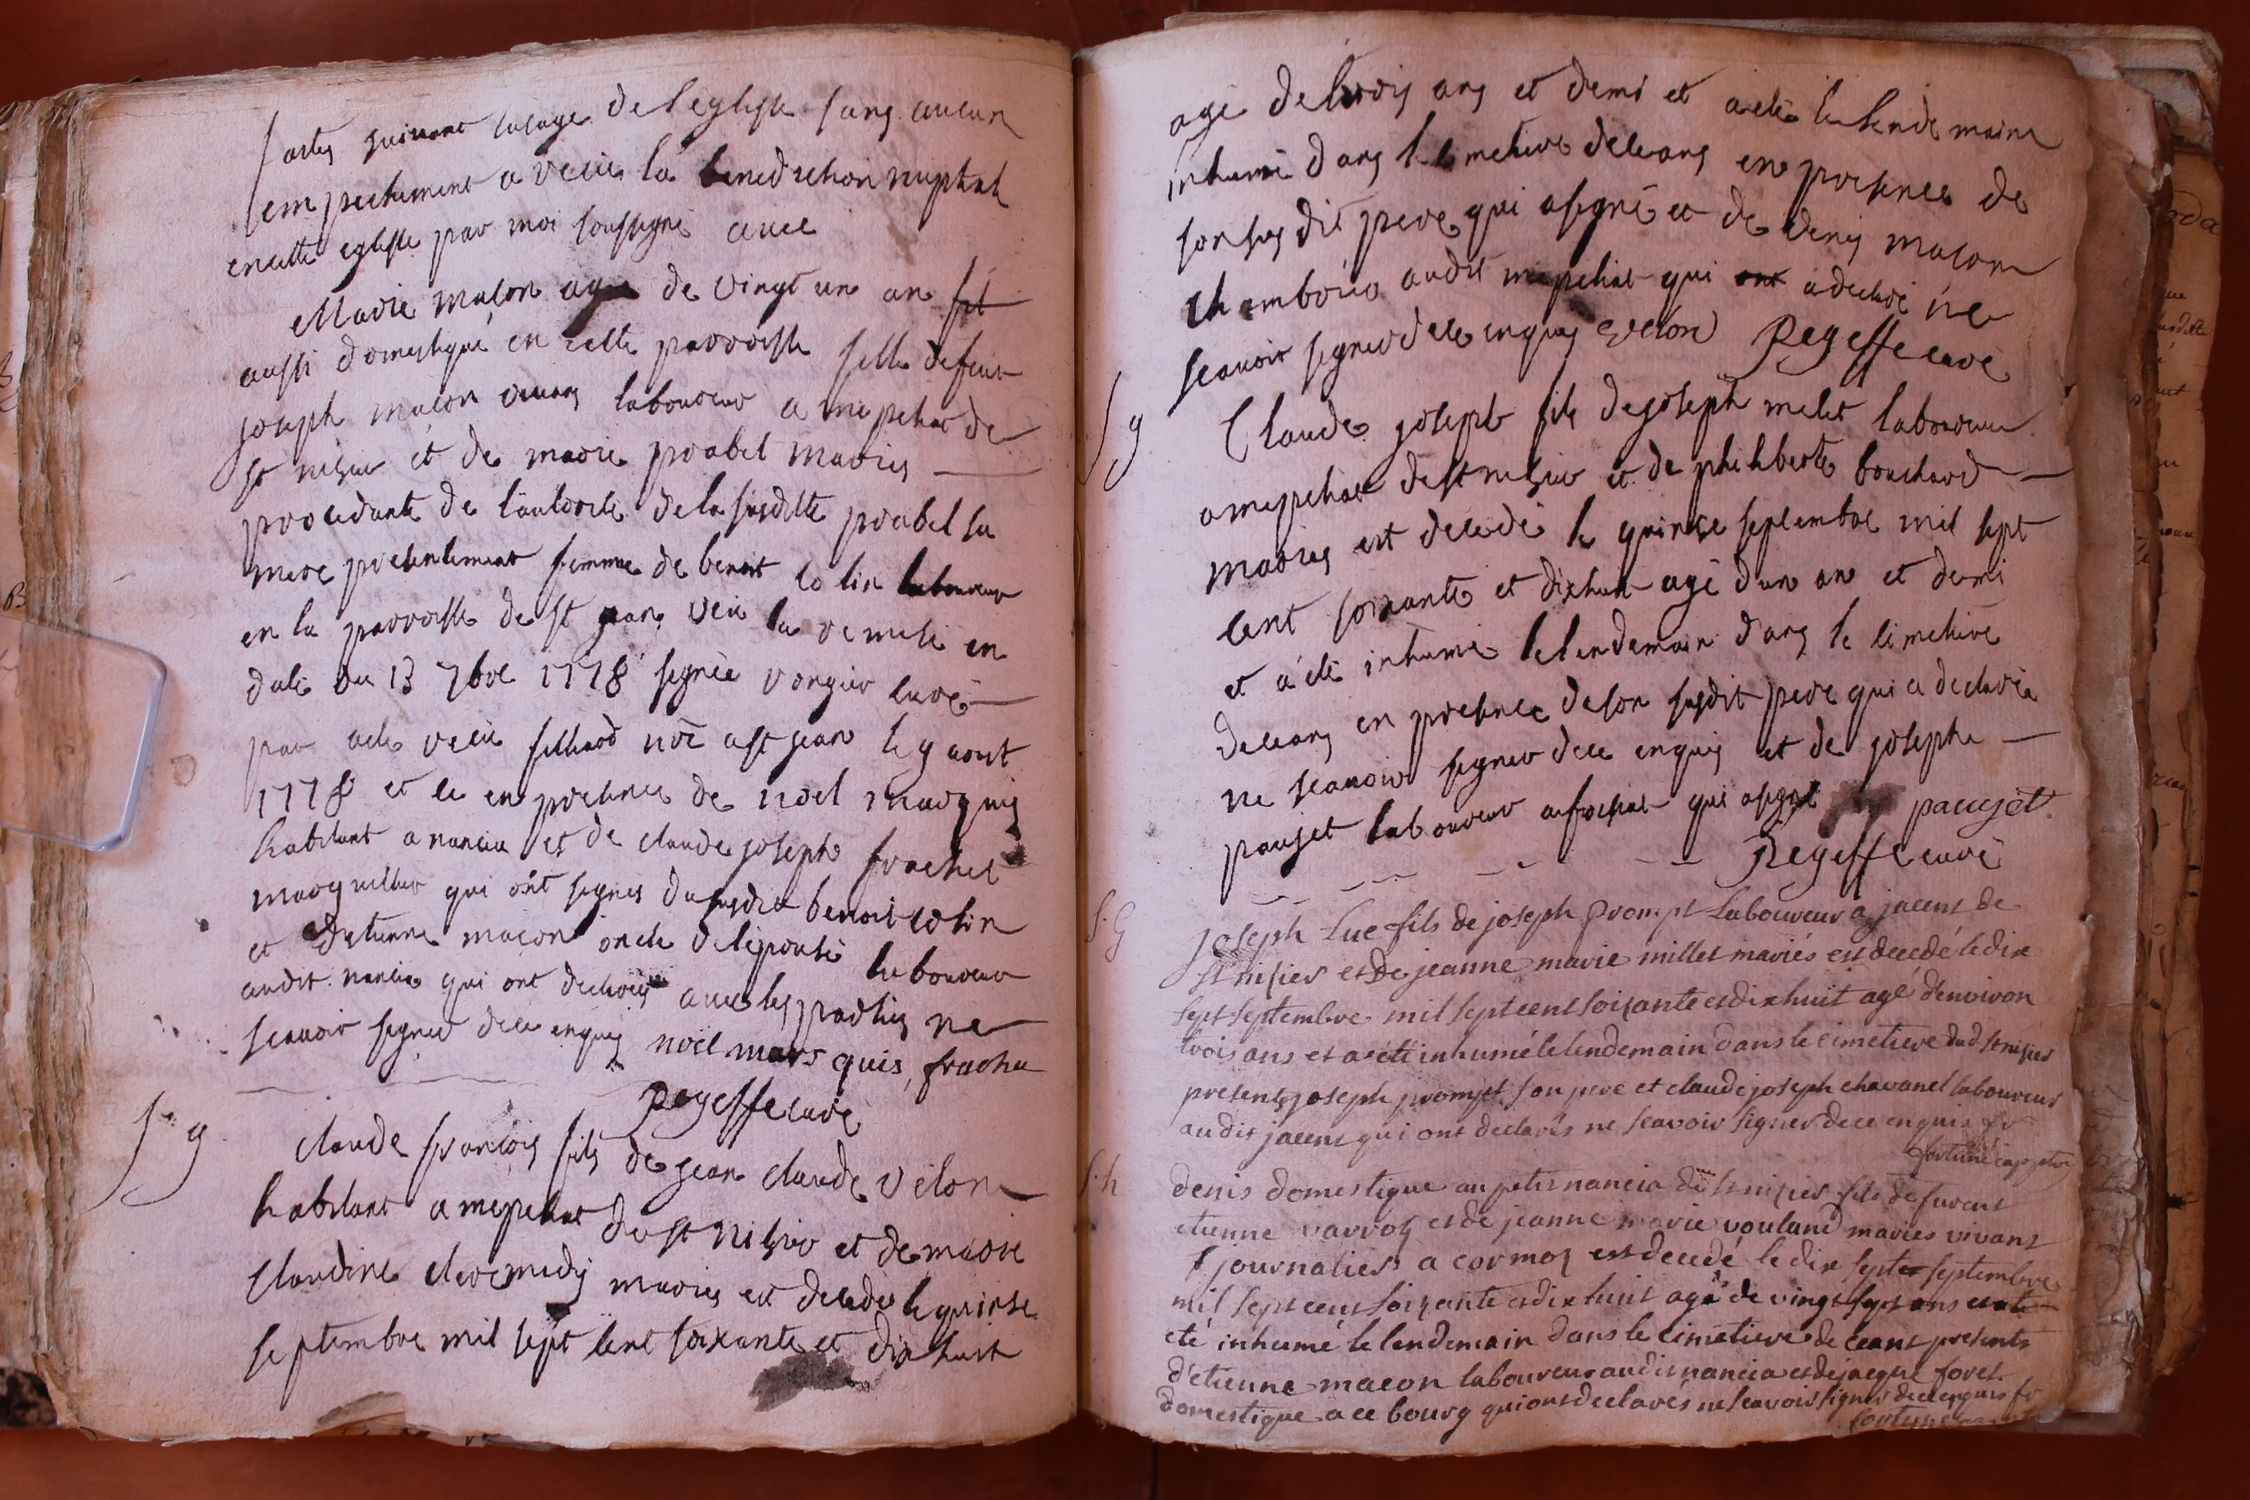 faites suivant l'usage de l'eglise sans aucun
empechement a recu la benediction nuptiale
en cette eglise par moi soussigné avec
Marie maçon agée de vingt un an
aussi domestique en cette parroisse fille defeut
joseph maçon vivant laboureur a mepeliat de
st nisier et de marie prabel mariés
procedante de l'autorité de la susditte prabel sa
mere presentement femme de benoit colin laboureur
en la parroisse de st jean veu la remise en
date du 13 7bre 1778 signée vorgier curé
par acte recu filliard nore a st jean le 9 aout
1778 et ce en presence de noel marquis
habitant a nancia et de claude joseph frachet
marguillier qui ont signés du susdit benoit colin
et d'etienne maçon oncle de l'epouse laboureur
audit nancia qui ont declarés avec les parties ne
scavoir signer de ce enquis noël mars quis, frache
Regeffe curé
S g
claude françois fils de jean claude velon
habitant a mepeliat de st nisier et de marie
claudine cleremedy mariés est decedé le quinse
septembre mil sept cent soixante et dix huit
agé de trois ans et demi et a eté le lendemain
inhumé dans le cimetiere de ceans en presence de
son susdit pere qui a signé et de denis maçon
chamborier audit mepeliat qui a declaré ne
scavoir signer de ce enquis velon Regeffe curé
S g
Claude joseph fils de joseph milet laboureur
a mepeliat de st nisier et de philiberte bouchard
mariés est decedé le quinse septembre mil sept
cent soixante et dix huit agé d'un an et demi
et a eté inhumé le lendemain dans le cimetiere
de ceans en presence de son susdit pere qui a declaré
ne scavoir signer de ce enquis et de joseph
paujet laboureur qui a signé paujet
Regeffe curé
S. G
joseph Luc fils de joseph prompt laboureur a jacens de
st nisier et de jeanne marie millet mariés est decedé le dix
sept septembre mil sept cent soixante et dix huit agé d'environ
trois ans et a eté inhumé le lendemain dans le cimetiere dud st nisier
presents joseph prompt son pere et claude joseph chavanel laboureur
audit jacens qui ont declarés ne scavoir signer de ce enquis fr
fortuné capptin
S. h
denis domestique au petit nancia de st nisier fils de furent
etienne varroz et de jeanne marie vouland mariés vivant
journalier a cormoz est decedé le dix sept septembre
mil sept cent soixante et dix huit agé de vingt sept ans et a
eté inhumé le lendemain dans le cimetiere de ceans presents
d'etienne maçon laboureur audit nancia et de jacque foret
domestique a ce bourg qui ont declarés ne scavoir signer de ce enquis fr
fortuné